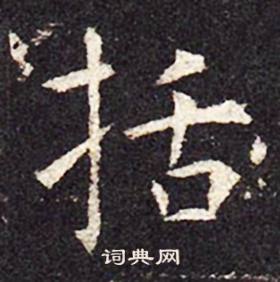 括
词典网